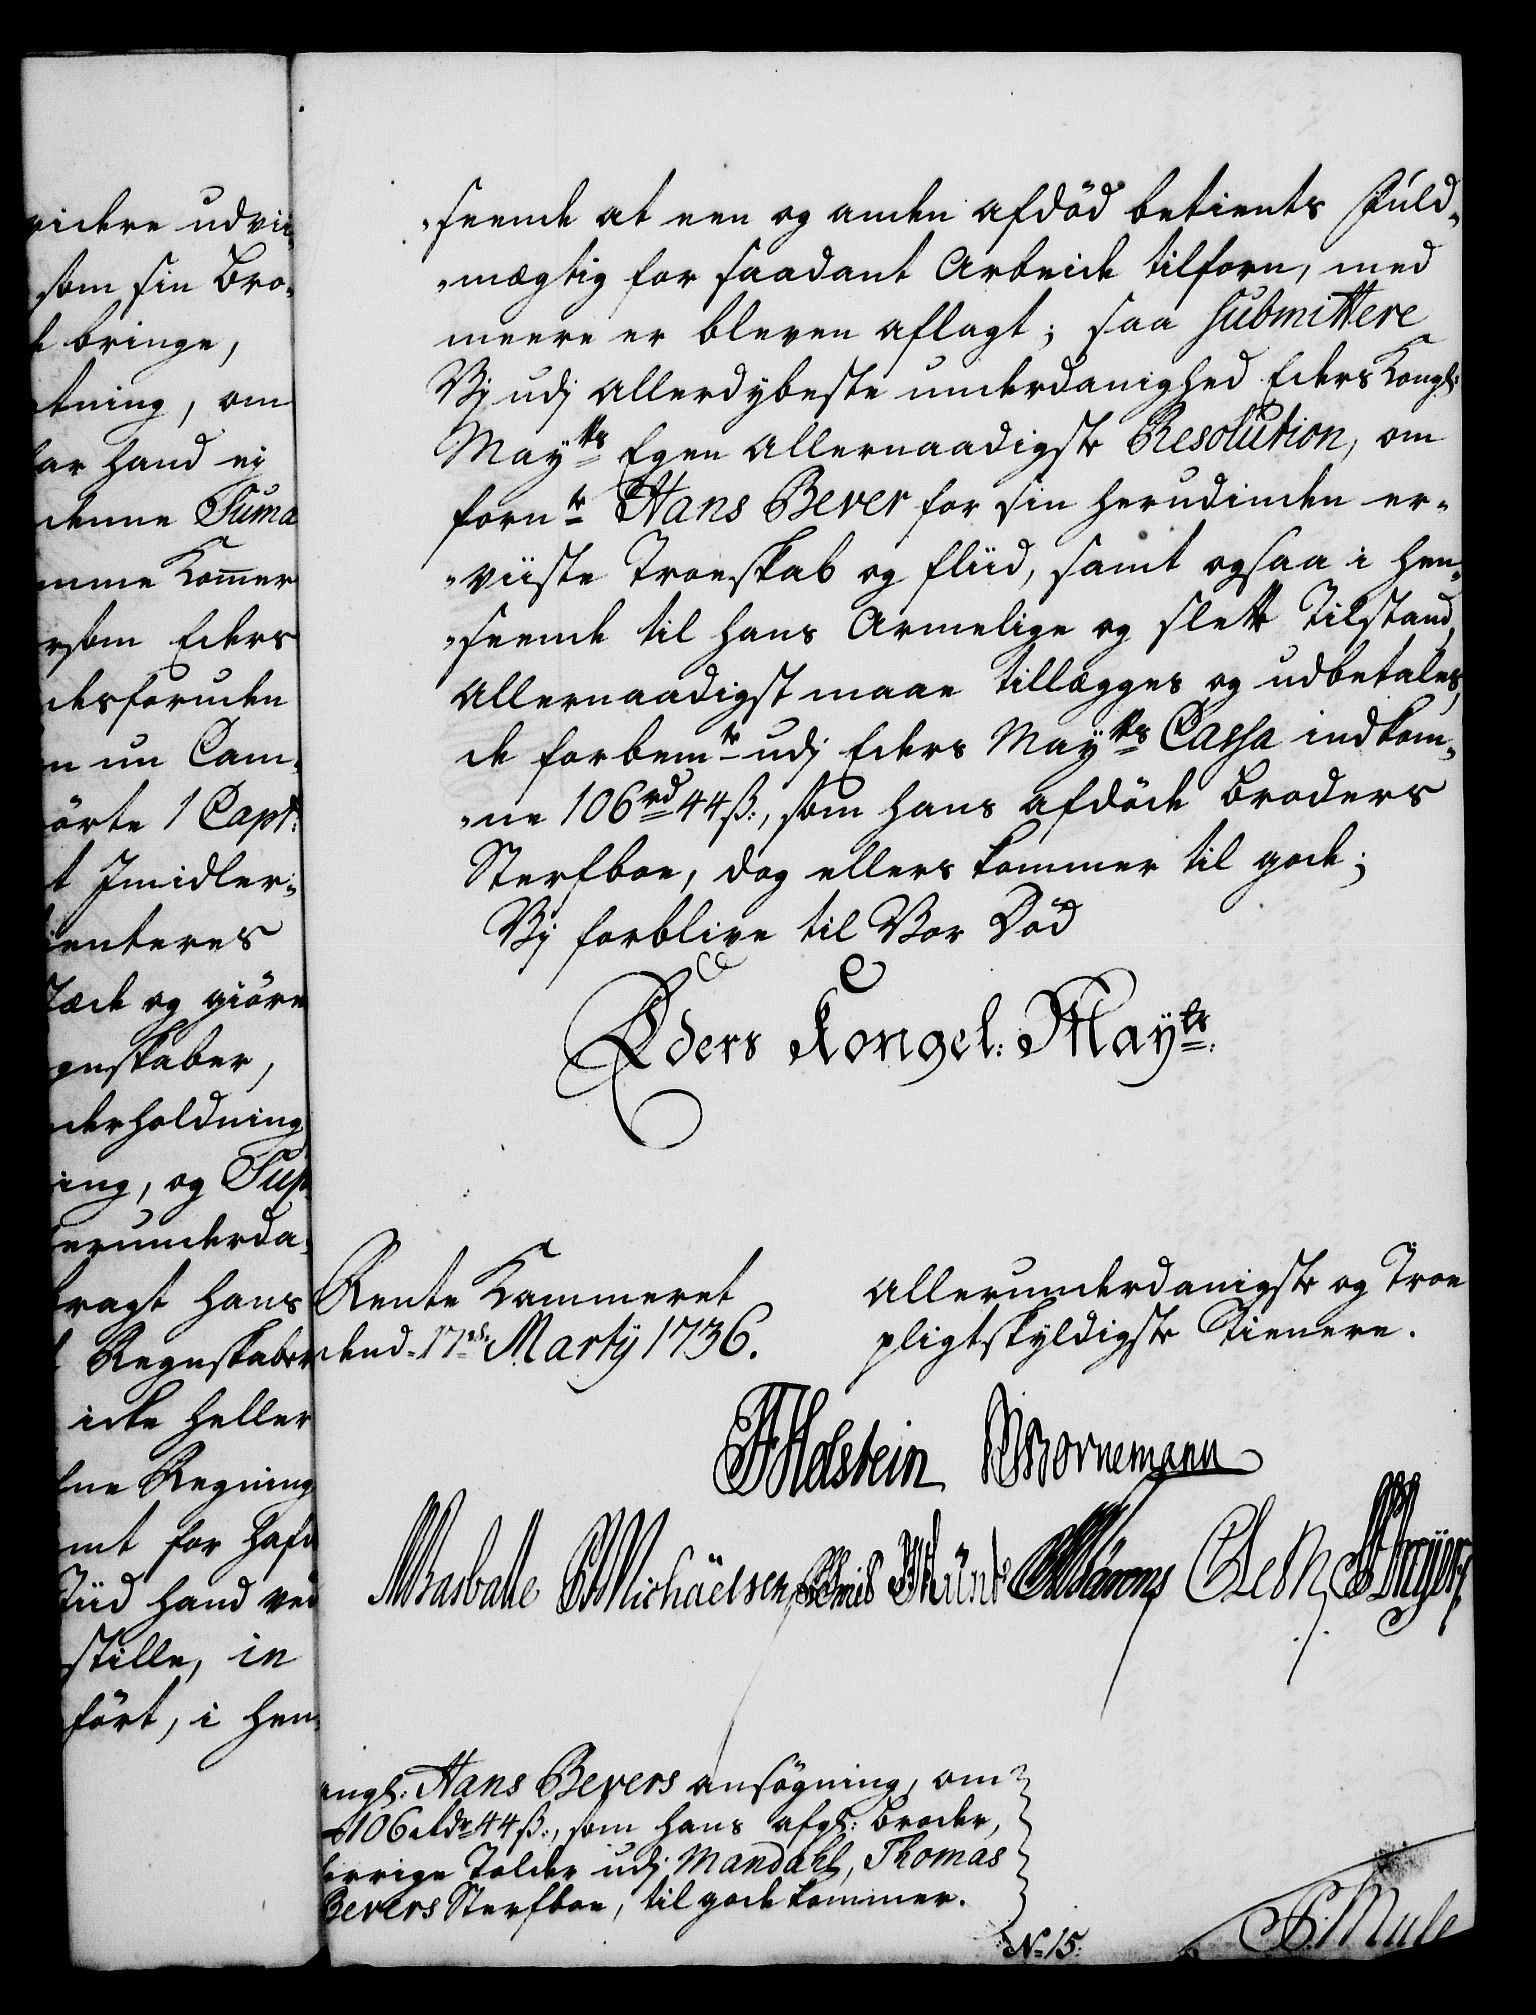 videre udvii-
som sin Bro-
bringe,
tning, om
har hand ej
denne Suma
mme Kom̅er
rsom Eders
desforuden
n un Cam-
örte 1 Capt:
t Imidler-
enteres
og giöre
gnskaber,
derholdning
ing, og Sup
erunderda-
bragt hans
Regnskaber
icke heller
lne Regning
mt for hafd
Tiid hand ved
stille, in
fört, i hen-
-seende at een og anden afdöd betients Fuld-
-mægtig for saadant Arbeide tilforn, med
meere er bleven aflagt; saa submittere
Vj udj allerdybeste underdanighed Eders Kongl:
Maytts Egen allernaadigste Resolution, om
fornte Hans Bever for sin herudinden er-
-viiste Troeskab og fliid, samt ogsaa i hen-
-seende til hans Armelige og slette Tilstand,
allernaadigst maae tillegges og udbetales,
de forbemte udj Eders Maytts Cassa indkom-
-ne 106 rd 44 ß:, som hans afdöde Broders
Sterfboe, dog ellers kommer til gode;
Vj forblive til Vor Död
Eders Kongel: Mayts:
Rente Kammeret
dend 17de Martij 1736.
allerunderdanigste og Troe
pligtskyldigste Tienere.
Holstein Bornemann
Michäelsen
ngl: Hans Bevers ansögning, om
106 rdr 44 ß:, som hans afgl: Broder,
forrige Tolder udj Mandahl, Thomas
Bevers Sterfboe, til gode kommer.
No 15.
Mule